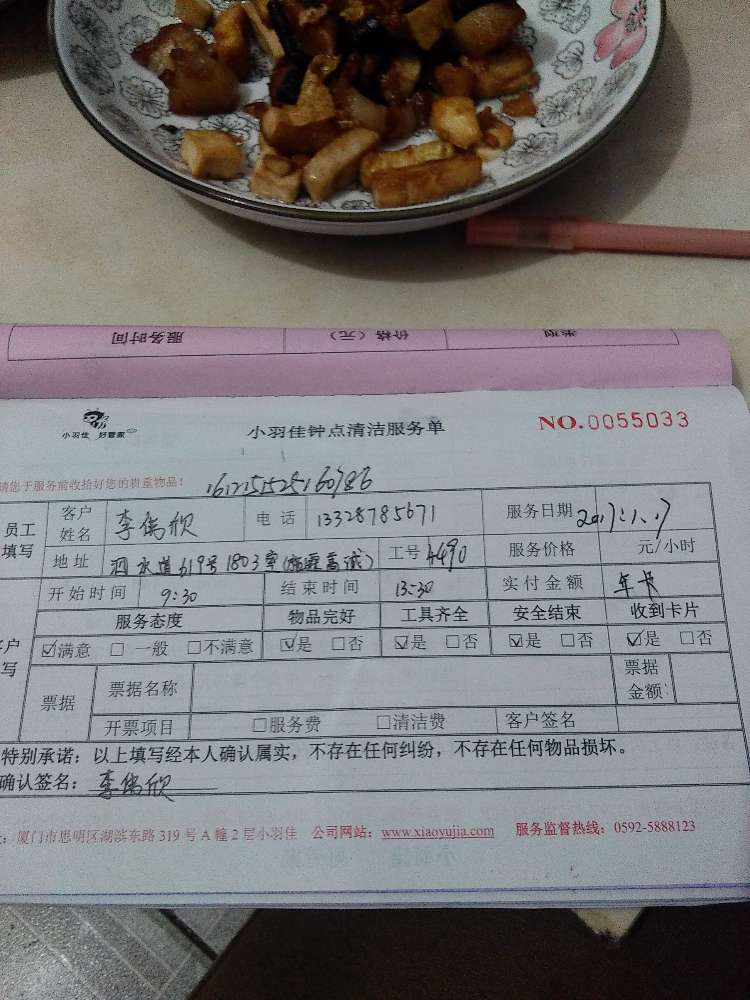 服务时间 价格（元） 类型
小羽佳 好管家
小羽佳钟点清洁服务单
NO.0055033
请您于服务前收拾好您的贵重物品！
员工填写 客户姓名 电话 13328785671 服务日期 2017.1.17
地址 619号1803室 工号 4490 服务价格 元/小时
开始时间 9:30 结束时间 13:30 实付金额 年卡
服务态度 物品完好 工具齐全 安全结束 收到卡片
☑满意 □一般 □不满意 ☑是 □否 ☑是 □否 ☑是 □否 ☑是 □否
票据 票据名称 票据金额
开票项目 □服务费 □清洁费 客户签名
特别承诺：以上填写经本人确认属实，不存在任何纠纷，不存在任何物品损坏。
确认签名：
厦门市思明区湖滨东路319号A幢2层小羽佳 公司网站：www.xiaoyujia.com 服务监督热线：0592-5888123